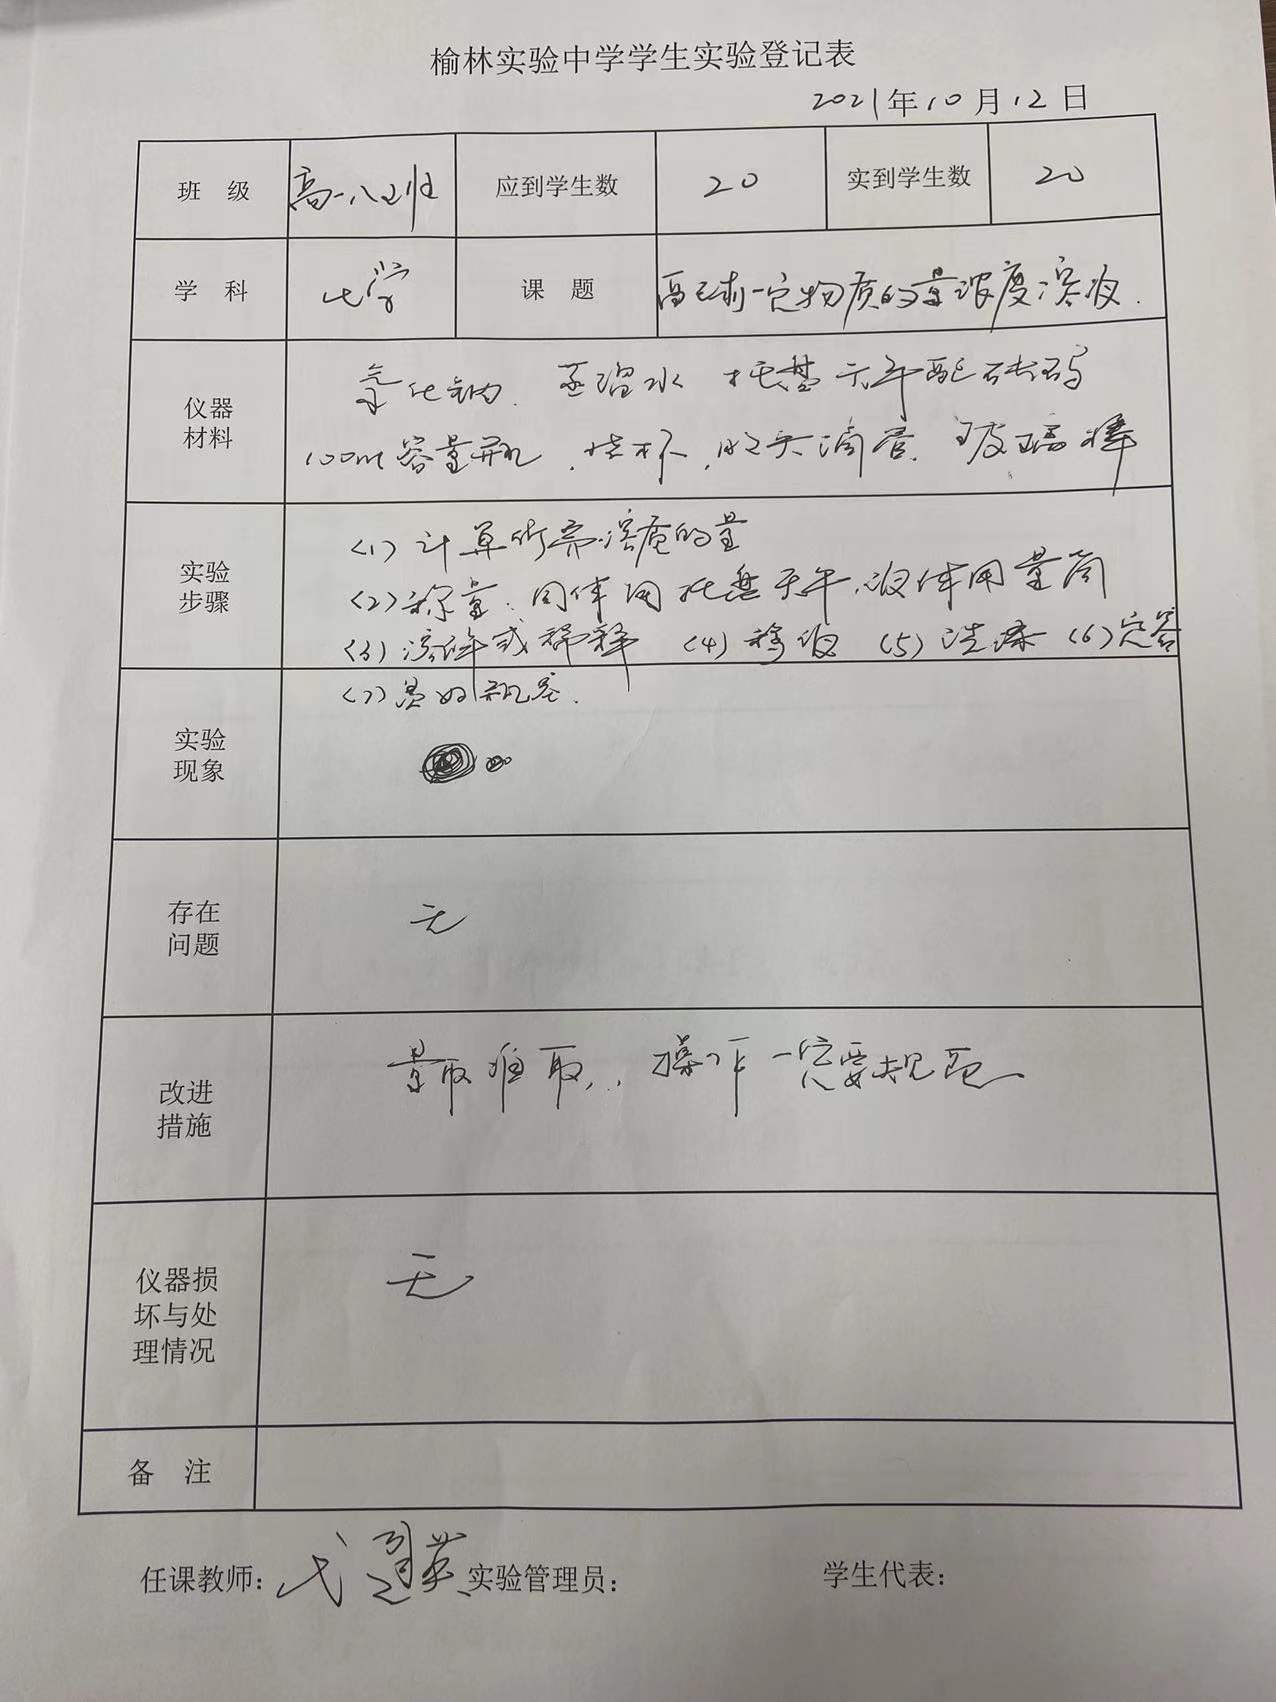 榆林实验中学学生实验登记表
2021年10月12日
班 级 高一八班 应到学生数 20 实到学生数 20
学 科 化学 课 题 配制一定物质的量浓度溶液.
仪器材料 氯化钠. 蒸馏水 托盘天平配砝码
100ml容量瓶,烧杯,胶头滴管.玻璃棒
实验步骤 (1)计算所需溶质的量
(2)称量:固体用托盘天平,液体用量筒
(3)溶解或稀释 (4)移液 (5)洗涤 (6)定容
(7)摇匀
实验现象
存在问题 无
改进措施 量取 取,操作一定要规范
仪器损坏与处理情况 无
备 注
任课教师: 实验管理员: 学生代表: